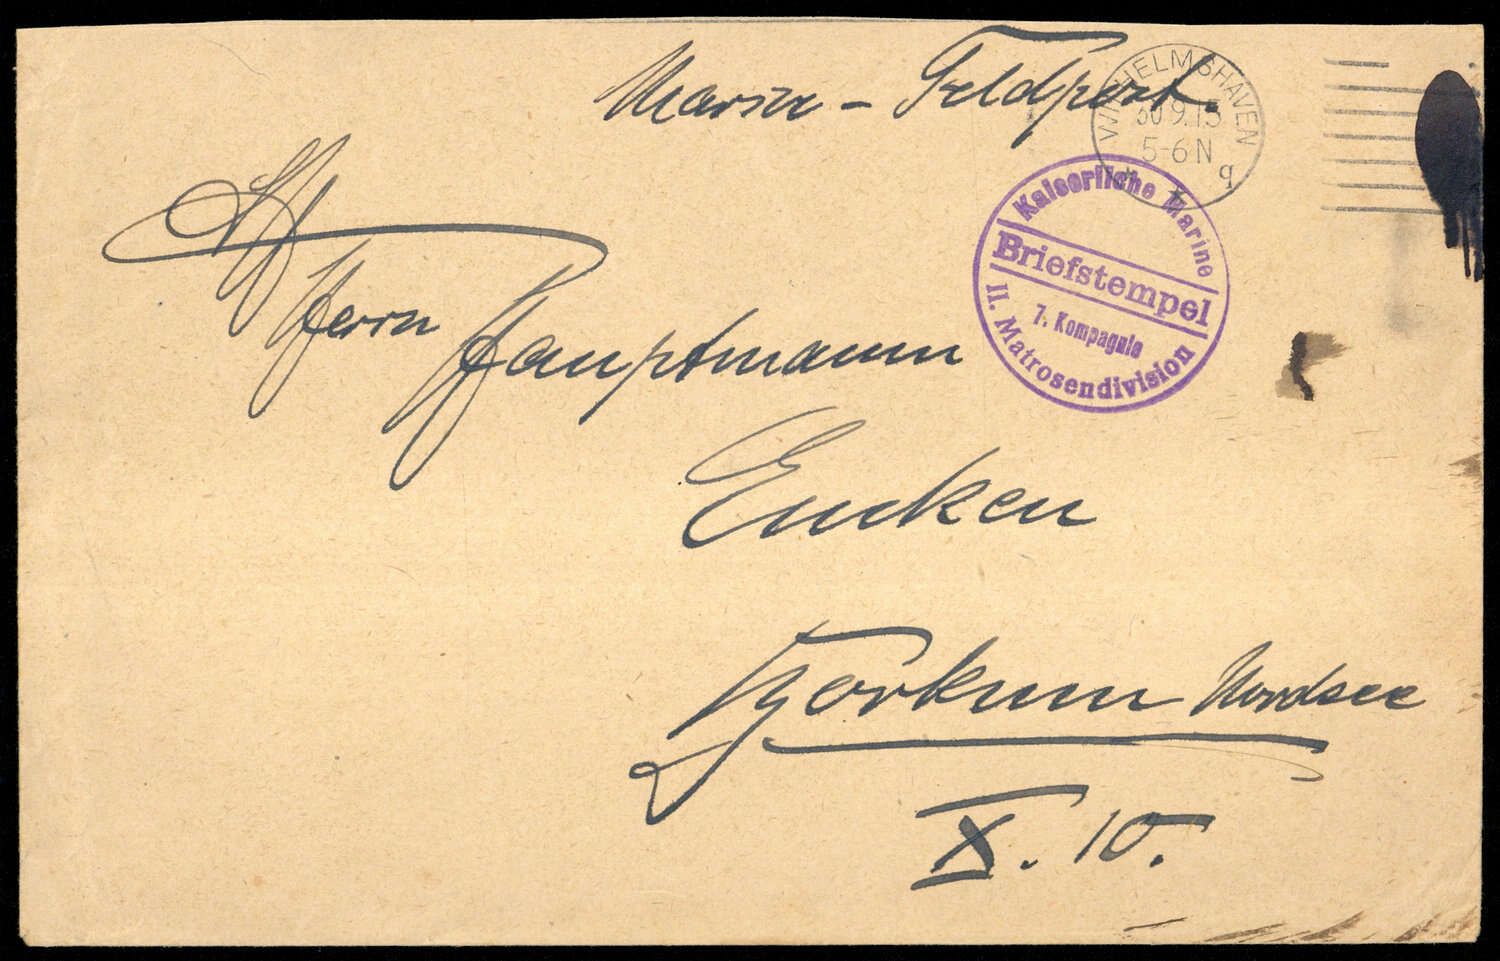 Marine - Feldpost.
WILHELMSHAVEN
30.9.15
5-6 N
* * q
Kaiserliche Marine
Briefstempel
7. Kompagnie
II. Matrosendivision
Herrn Hauptmann
Eucken
Borkum Nordsee
X. 10.